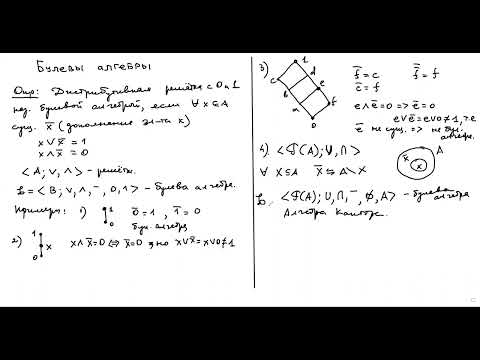 Булевы алгебры
Опр: Дистрибутивная решётка с 0 и 1
наз. булевой алгеброй, если ∀ x ∈ A
сущ. x̄ (дополнение эл-та x)
x ∨ x̄ = 1
x ∧ x̄ = 0
<A; ∨, ∧> - решётка.
<B; ∨, ∧, ¯, 0, 1> - булева алгебра.
Примеры: 1) 1 0 0̄ = 1 , 1̄ = 0
бул. алгебра
2) 1 x 0 x ∧ x̄ = 0 ⇔ x̄ = 0, но x ∨ x̄ = x ∨ 0 ≠ 1
3) 1 d c e b f a 0
f̄ = c f̿ = f
c̄ = f
e ∧ ē = 0 => ē = 0
e ∨ ē = e ∨ 0 ≠ 1, => ē не сущ. => не бул. алгебра.
4) <P(A); ∪, ∩>
∀ X ⊆ A X̄ ⇋ A \ X
X A
<P(A); ∪, ∩, ¯, ∅, A> - булева алгебра
Алгебра Кантора.